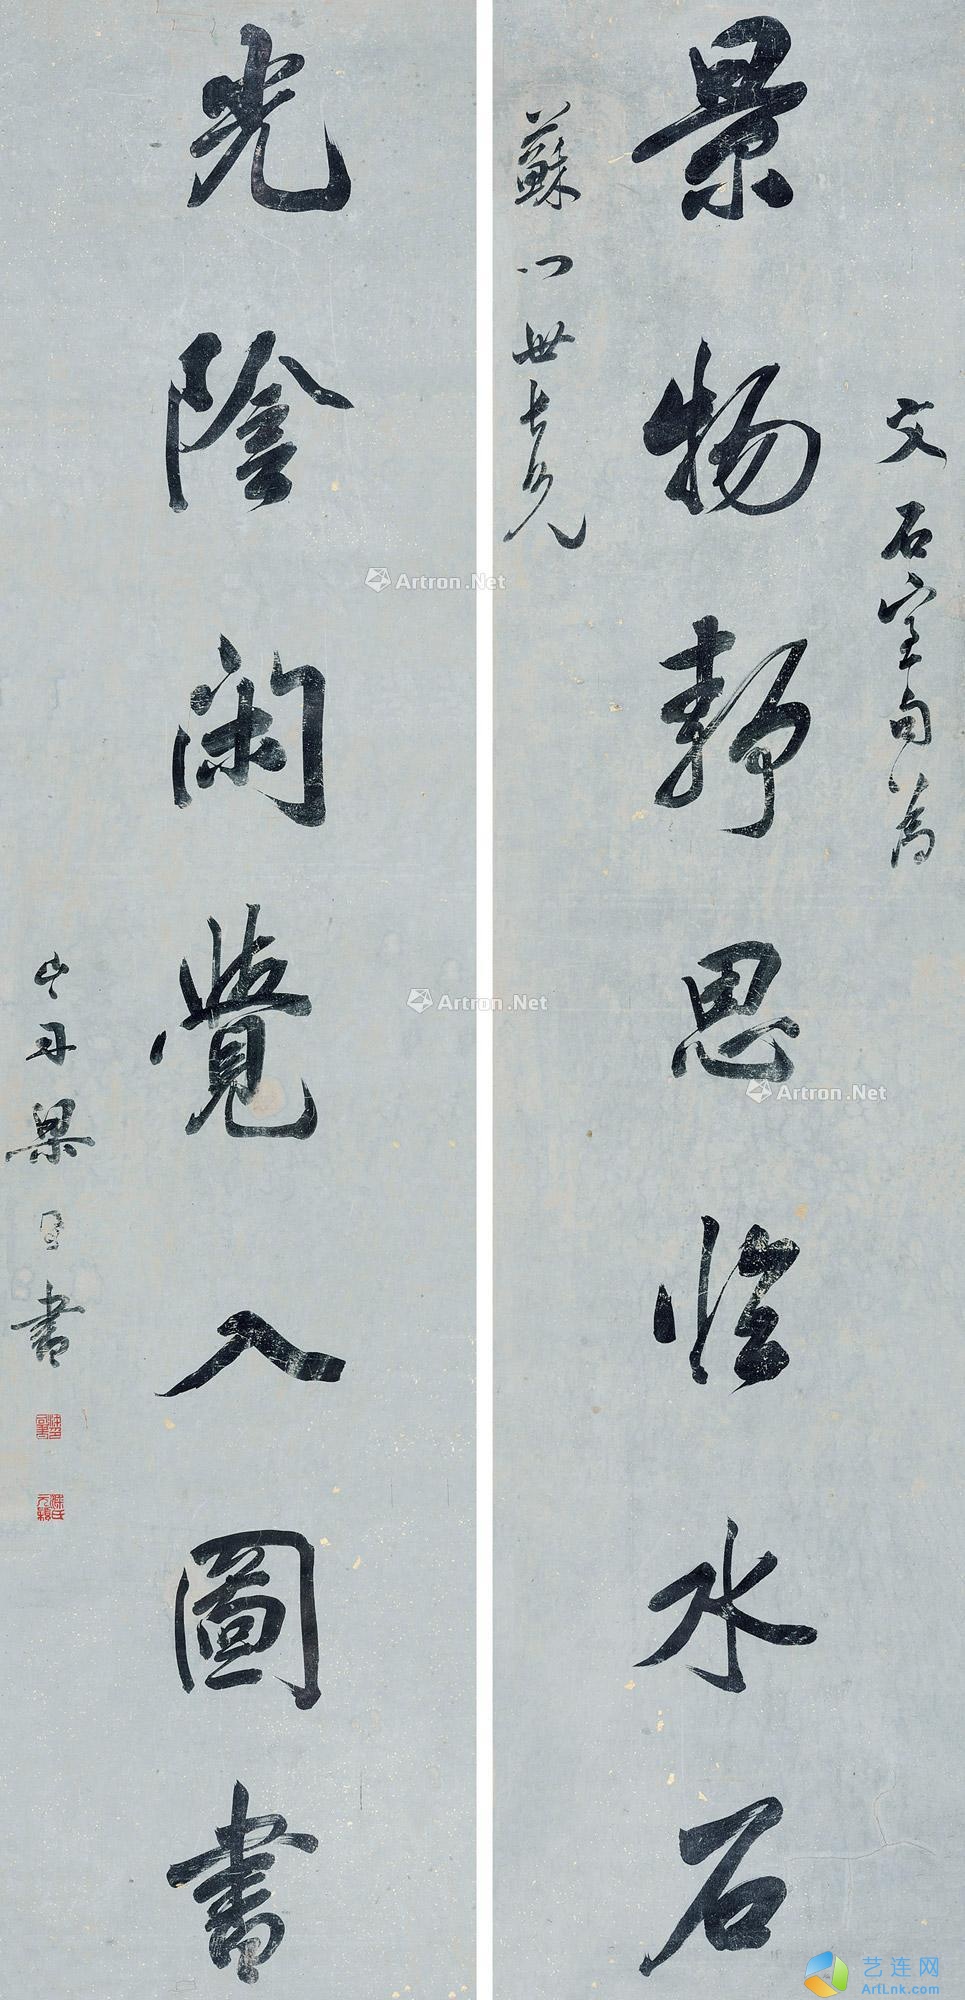 文石室句為
景物靜思臨水石
蘇門世長兄
光陰閑覺入圖書
山舟梁同書
Artron.Net
Artron.Net
Artron.Net
艺连网
ArtLnk.com